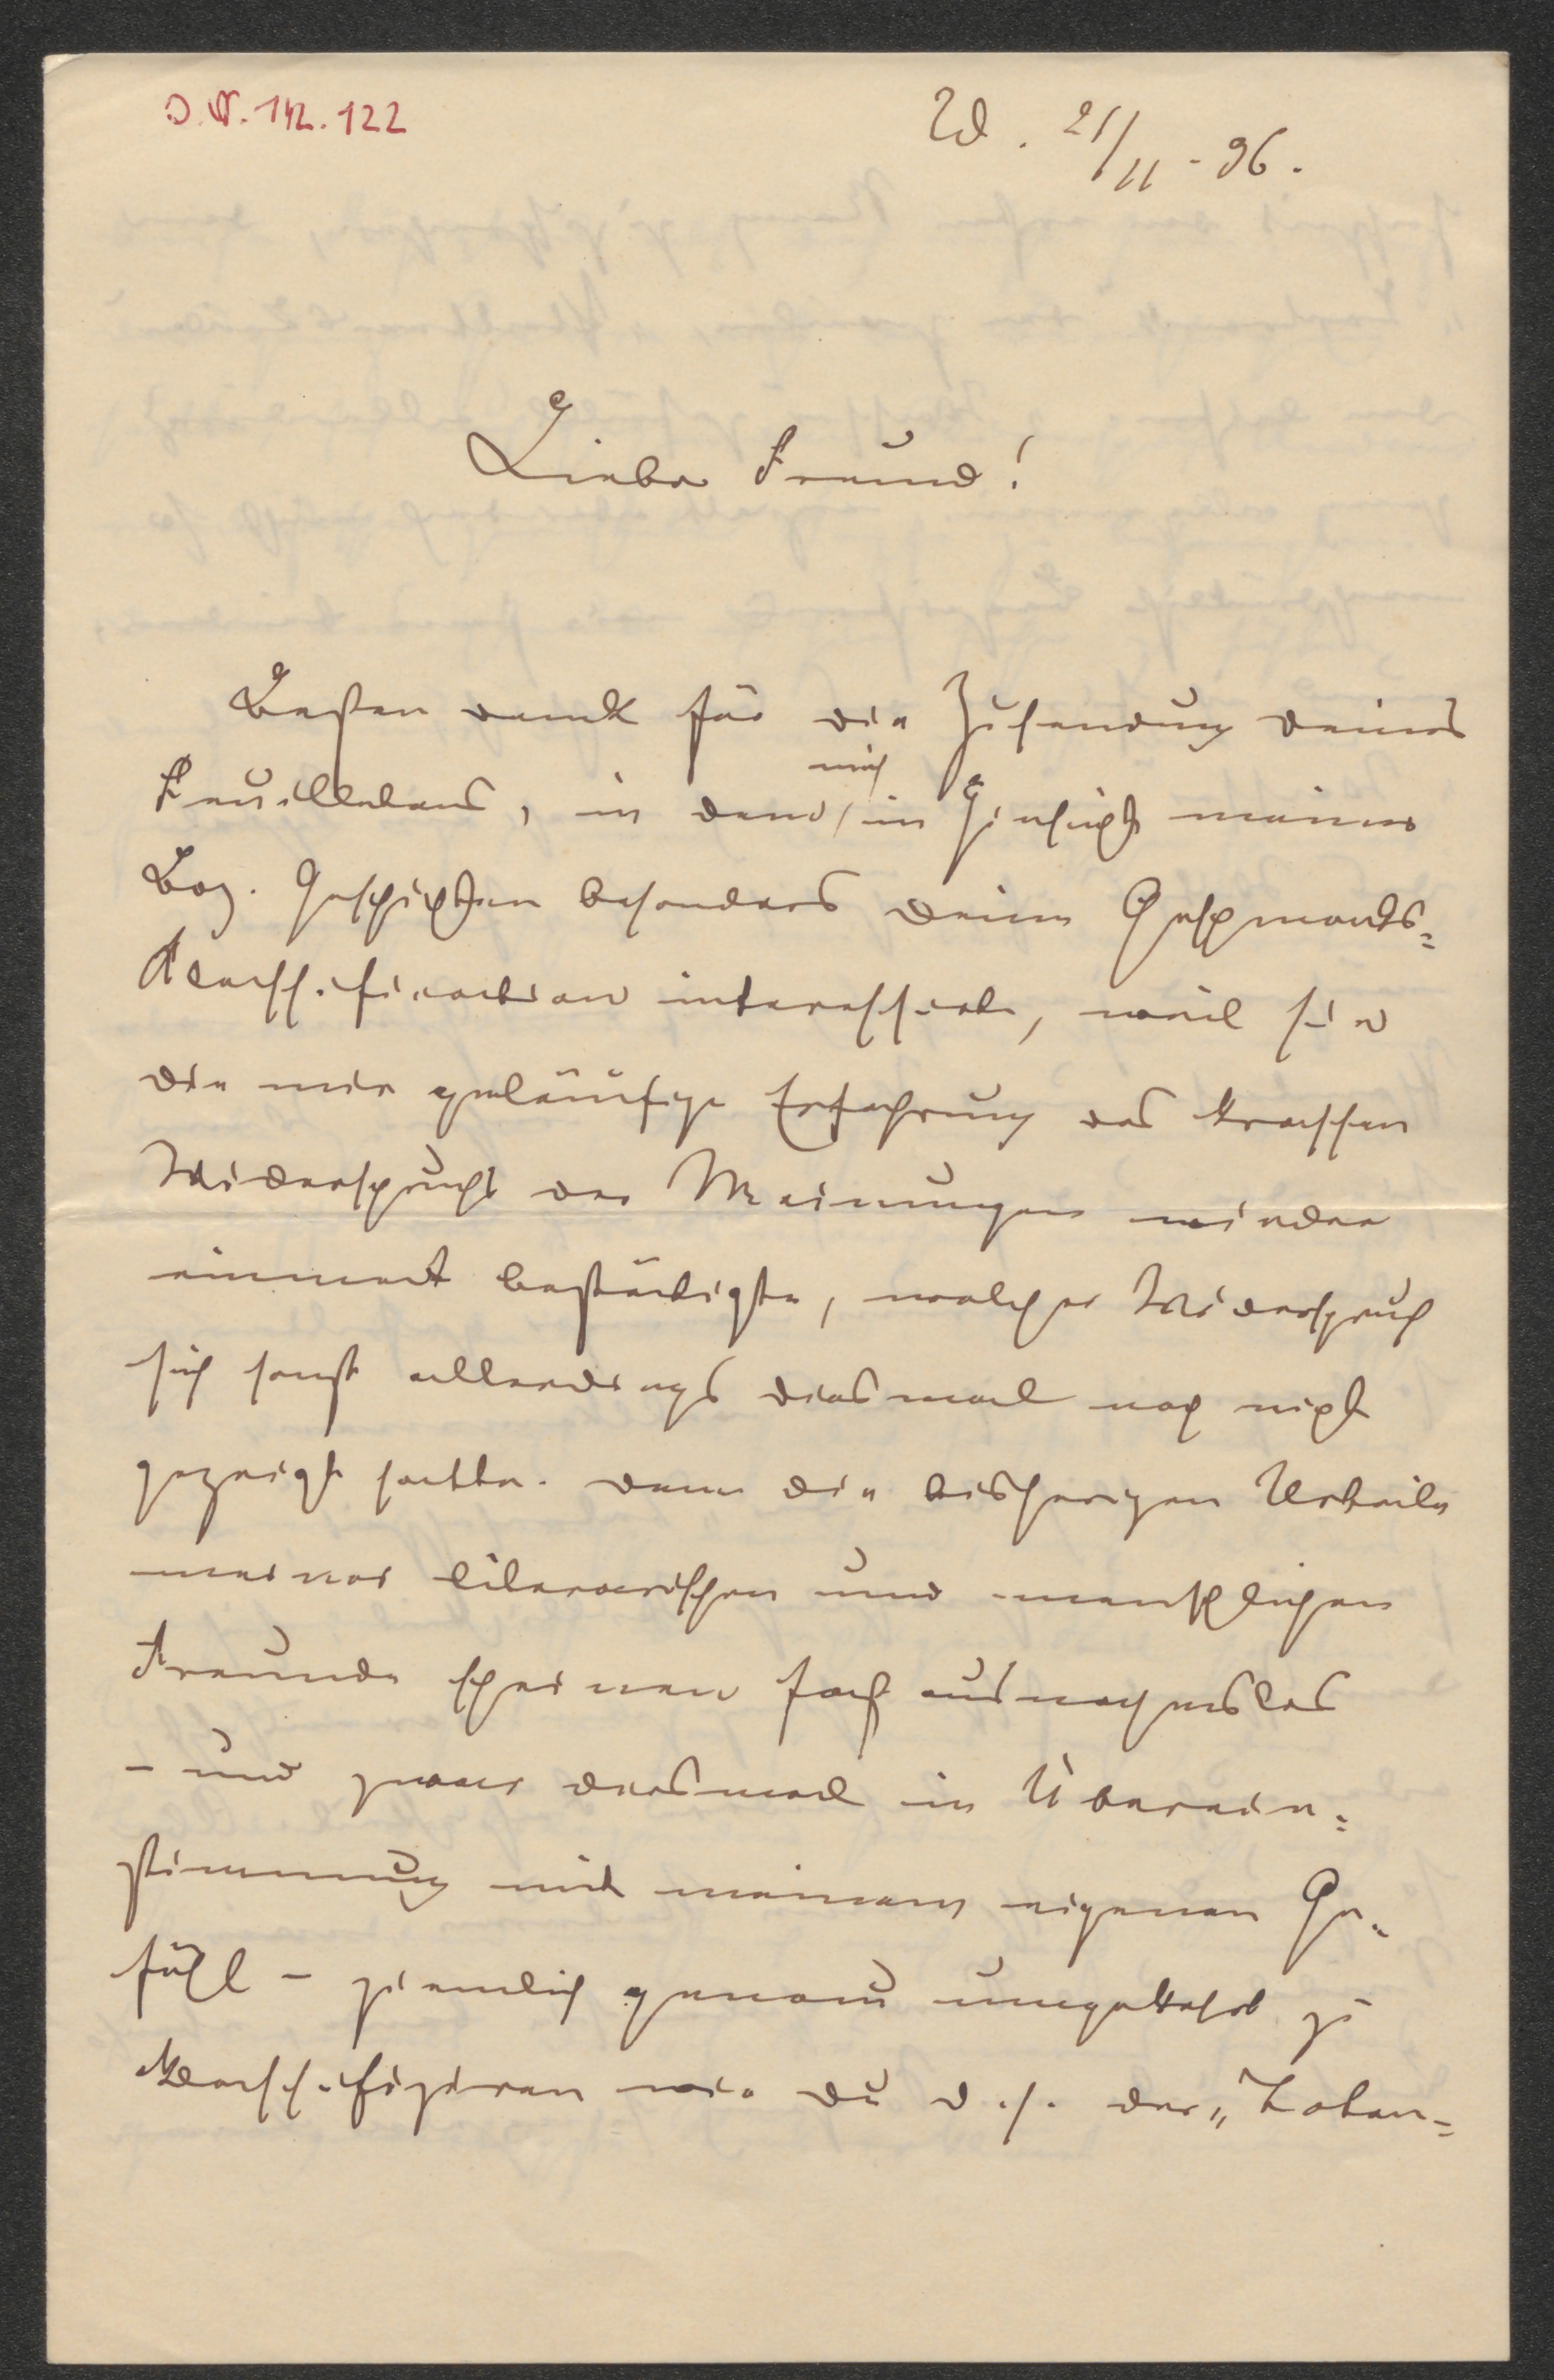 I.N. 142.122
W. 21/11 - 96.
Lieber Freund!
Besten Dank für die Zusendung deines
Feuilletons, in dem mich in Hinsicht meiner
Boz. Geschichten besonders deine Geschmacks=
Klassification interessirte, weil sie
die mir geläufige Erfahrung des krassen
Widerspruchs der Meinungen wieder
einmal bestätigte, welcher Widerspruch
sich sonst allerdings diesmal noch nicht
gezeigt hatte. Denn die bisherigen Urteile
meiner literarischen und menschlichen
Freunde scheinen fast ausnahmslos
– und zwar diesmal in Überein=
stimmung mit meinem eigenen Ge=
fühl – ziemlich genau umgekehrt zu
klassifiziren wie du d. h. der „Toten=